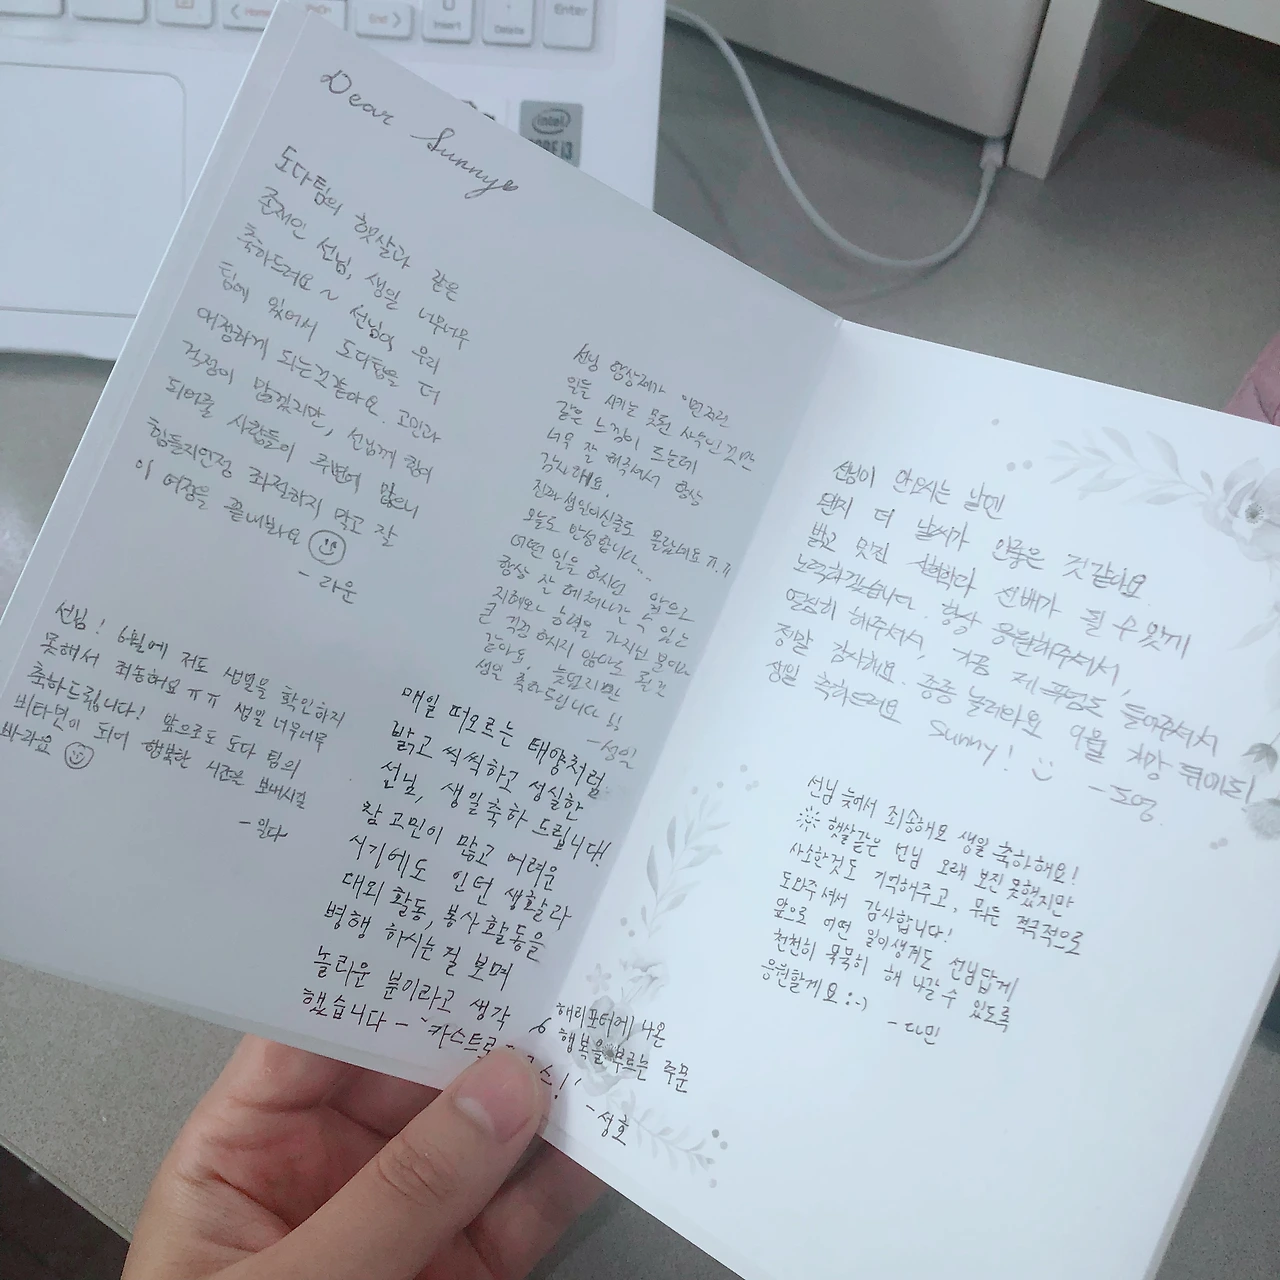 Home
PgDn
End
Insert
Delete
Enter
intel
CORE i3
Dear Sunny
도다팀의 햇살과 같은
존재인 선님, 생일 너무너무
축하드려요 ~ 선님이 우리
팀에 있어서 도다팀을 더
애정하게 되는것 같아요. 고민과
걱정이 많겠지만, 선님께 힘이
되어줄 사람들이 주변에 많으니
힘들지언정 좌절하지 말고 잘
이 여정을 끝내봐요
- 라운
선님! 6월에 저도 생별을 확인하지
못해서 죄송해요 ㅠㅠ 생일 너무너무
축하드립니다! 앞으로도 도다 팀의
비타민이 되어 행복한 시간을 보내시길
바라요
- 일다
선님 항상 제가 이런저런
일들 시키는 못된 사수인 것만
같은 느낌이 드는데
너무 잘 해주셔서 항상
감사해요.
진짜 성인이신줄도 몰랐네요 ㅠ.ㅠ
오늘도 반성합니다...
어떤 일을 하시던 앞으로
항상 잘 헤쳐나갈 수 있는
지혜와 능력을 가지신 분이라
큰 걱정 하시지 않아도 될 것
같아요. 늦었지만
생일 축하드립니다
- 성일
매일 떠오르는 태양처럼
밝고 씩씩하고 성실한
선님, 생일축하 드립니다!
참 고민이 많고 어려운
시기에도 인턴 생활과
대외 활동, 봉사 활동을
병행 하시는 걸 보며
놀라운 분이라고 생각
했습니다 - "카스트로
스!' - 성호
해리포터에 나온
행복을 부르는 주문
선님이 안오시는 날엔
왠지 더 날씨가 안좋은 것 같아요
밝고 멋진 선배가 될 수 있게
노력하겠습니다. 항상 응원해주셔서,
열심히 해주셔서, 가끔 제 푸념도 들어주셔서
정말 감사해요. 종종 놀러와요 9월
생일 축하드려요 Sunny!
- 도영
선님 늦어서 죄송해요 생일 축하해요!
햇살같은 선님 오래 보진 못했지만
사소한것도 기억해주고, 뭐든 적극적으로
도와주셔서 감사합니다!
앞으로 어떤 일이생겨도 선님답게
천천히 묵묵히 해 나갈 수 있도록
응원할게요 :-)
- 다민